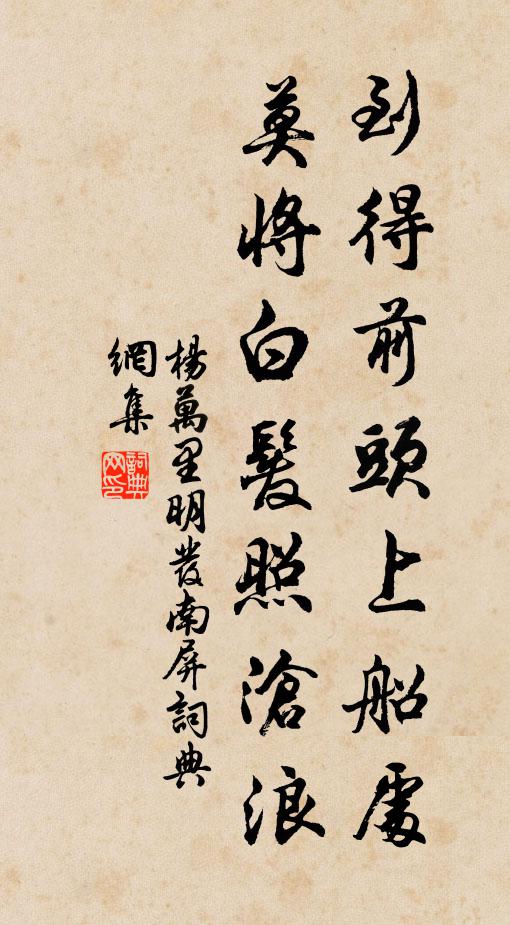 到得前頭上船處
莫將白髮照滄浪
楊萬里明發南屏詞典
網集
詞典網印